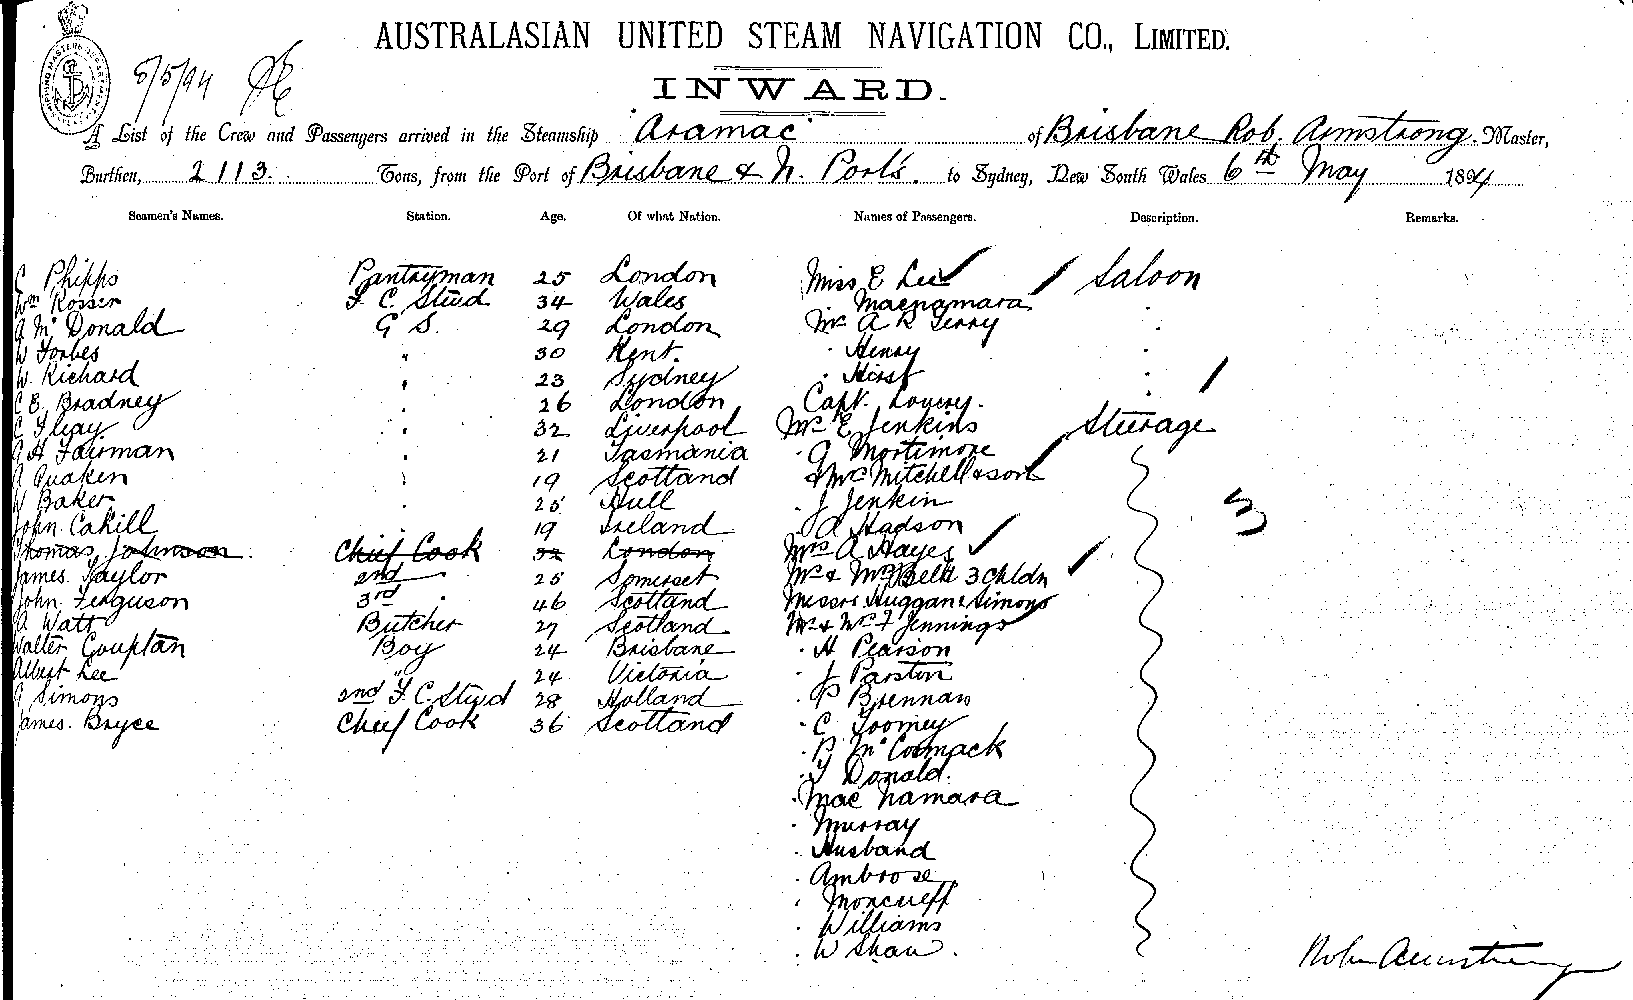 AUSTRALASIAN UNITED STEAM NAVIGATION CO., LIMITED.
8/5/94
INWARD.
A List of the Crew and Passengers arrived in the Steamship "Aramac" of Brisbane Rob. Armstrong. Master,
Burthen, 2113. Tons, from the Port of Brisbane & N. Ports. to Sydney, New South Wales 6th May 1894
Seamen's Names. Station. Age. Of what Nation. Names of Passengers. Description. Remarks.
C Phipps Pantryman 25 London Miss E Lee Saloon
Wm Rosser F. C. Stud 34 Wales " Macnamara "
A McDonald G S. 29 London Mr A R Terry "
W Forbes " 30 Kent. " Henry "
W. Richard " 23 Sydney " Hirst "
C E. Bradney " 26 London Capt. Lowry.
C " 32 Liverpool Mr E Jenkins Steerage
A H Fairman " 21 Tasmania " G Mortimore
A Quaken " 19 Scotland & Mrs Mitchell & son
W Baker " 25 Hull " J Jenkin
John Cahill 19 Ireland " A Hadson
Thomas Johnson. Chief Cook 32 London Mrs A Hayes
James Taylor 2nd " 25 Somerset Mr & Mrs Belk 3 Chldn
John Ferguson 3rd " 46 Scotland Messrs Huggan & Simons
A Watt Butcher 27 Scotland Mr & Mrs F Jennings
Walter Couptan Boy 24 Brisbane " H Pearson
Albert Lee " 24 Victoria " J Parston
G Simons 2nd F. C. Stud 28 Holland " P Brennan
James. Bryce Chief Cook 36 Scotland " C Toomey
" P. McCormack
" T Donald.
" Mac Namara
" Murray
" Husband
" Ambrose
" Moncrieff
" Williams
" W Shaw.
3
Robr Armstrong